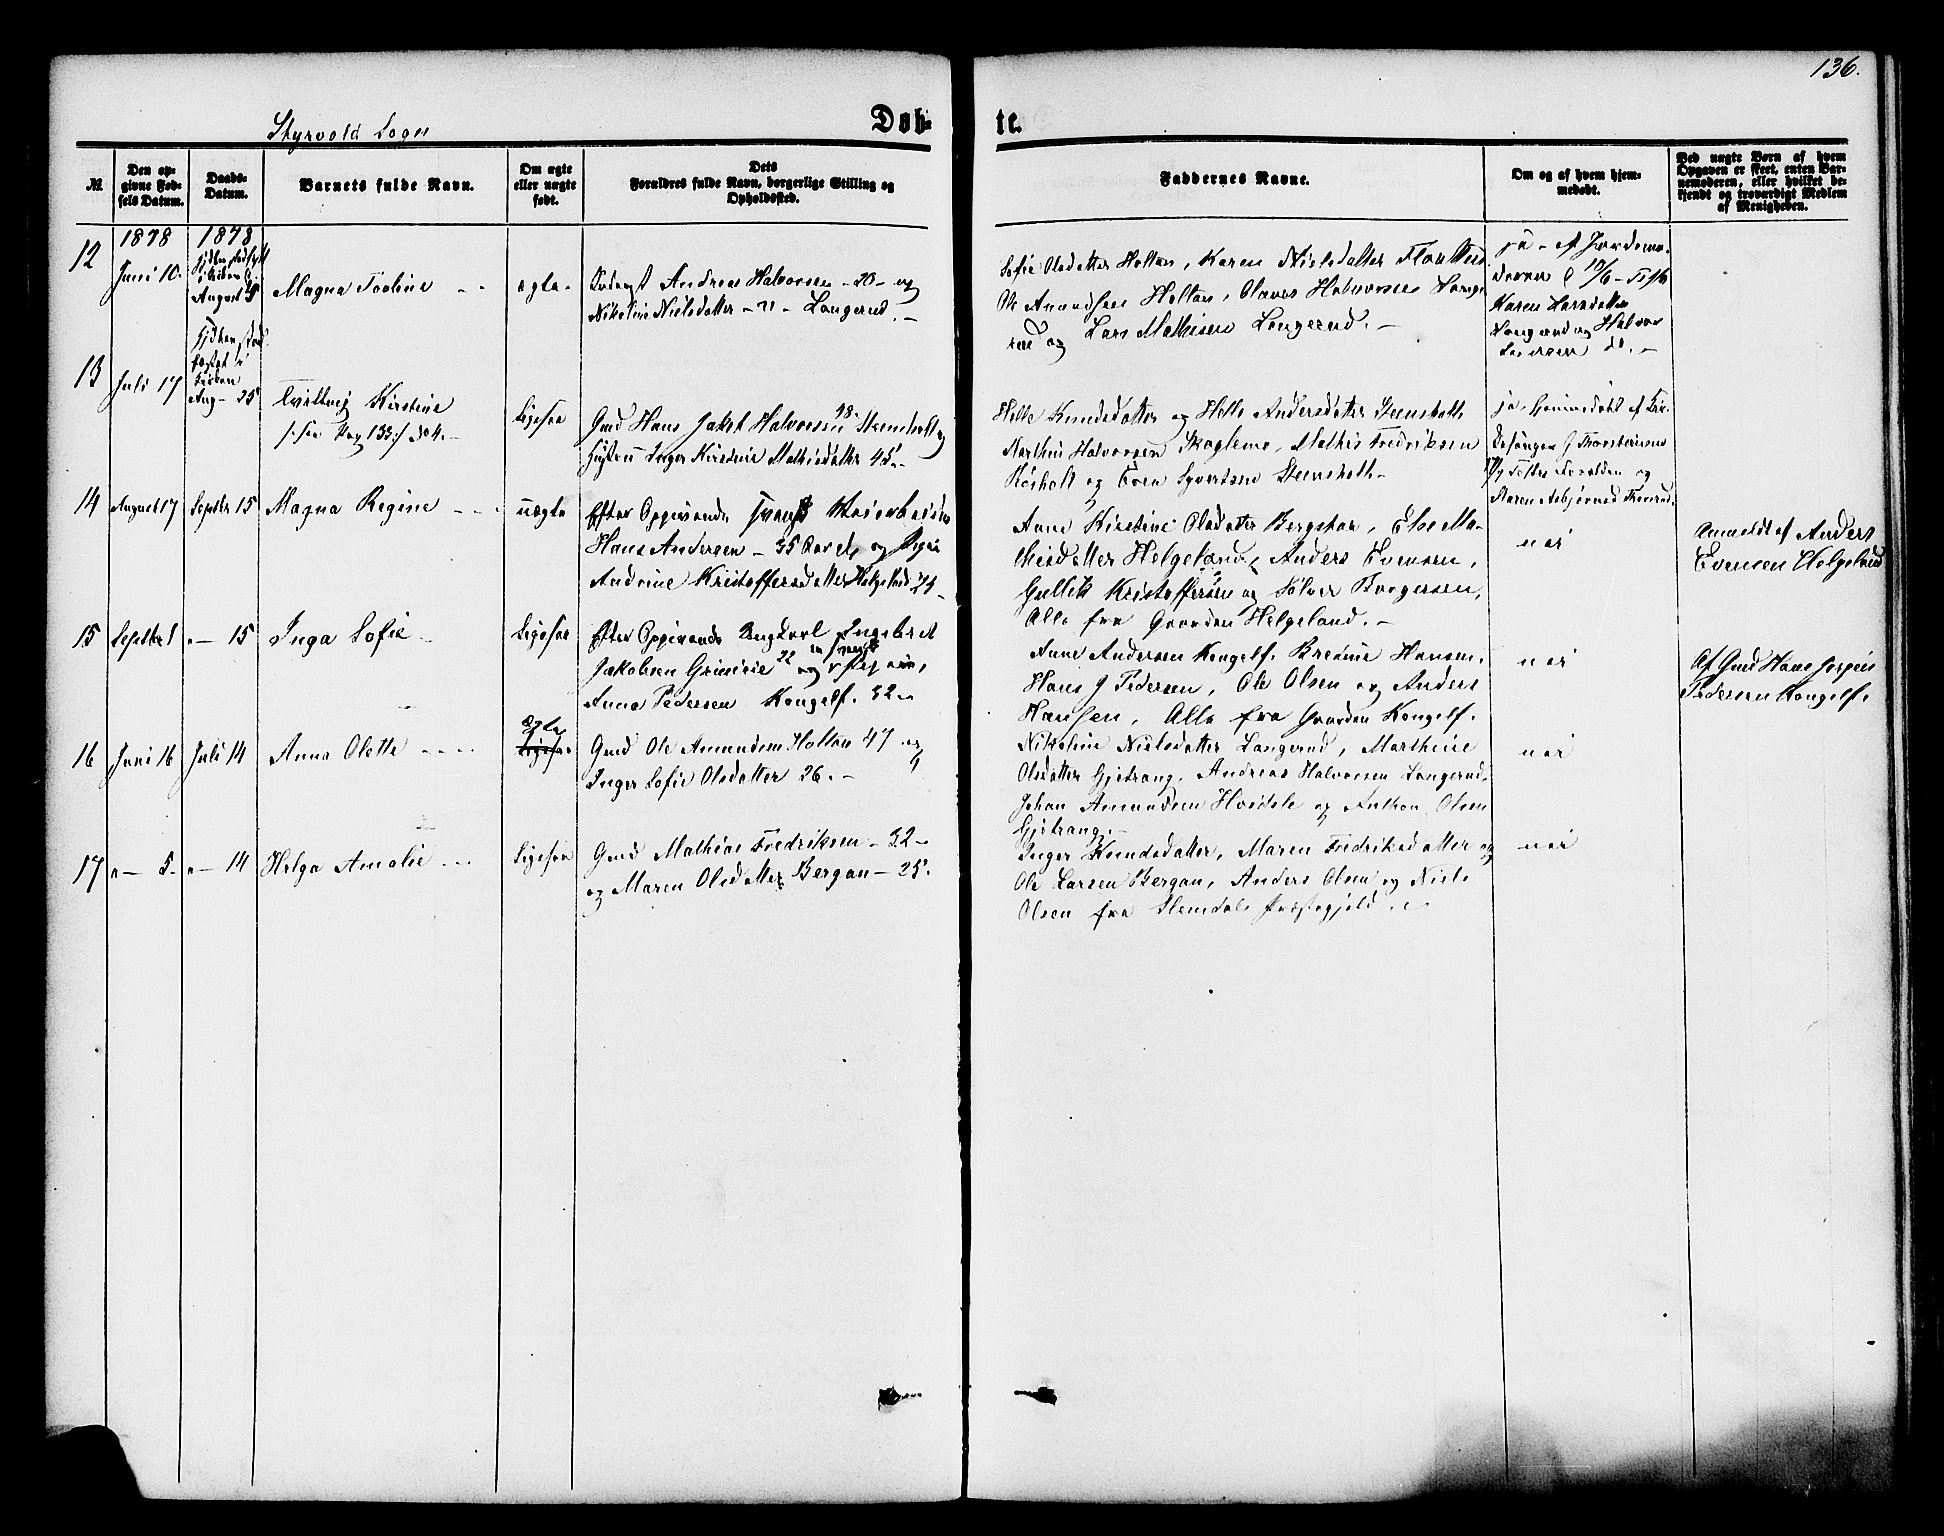 136.
Styrvold Sogn
Døb-
te.
№
Den op-
givne Fød-
sels Datum.
Daabs-
Datum.
Barnets fulde Navn.
Om ægte
eller uægte
født.
Dets
Forældres fulde Navn, borgerlige Stilling og
Opholdssted.
Faddernes Navne.
Om og af hvem hjem-
medøbt.
Ved uægte Børn af hvem
Opgaven er skeet, enten Bar-
nemoderen, eller hvilket be-
kjendt og troværdigt Medlem
af Menigheden.
12
1878
Juni 10.
1878
August
Magna Tooline
ægte
Andreas Halvorsen - 20 - og
Nikoline Nielsdatter - 21 - Langerud. -
Sofie Olsdatter Holtan, Karen Nielsdatter
Ole Amundsen Holtan, Olaves Halvorsen Lange
rud og Lars Mathisen Langerud. -
ja - af Jordemo-
deren 10/6
Karen Larsdatter
Langerud og Halvor
do. -
13
Juli 17
Kirken
Aug - 25
Kirstine
Pag 133
Ligesaa
Gmd Hans Jakob Halvorsen 48 Steensholt og
Hustru Inger Kirstine Mathisdatter 45. -
Helle Knudsdatter og Helle Andersdatter Steensholt
Halvorsen Skoglemo, Mathis Fredriksen
Røsholt og Even Syvertsen Steensholt -
ja hjemmedøbt af Kir-
kesanger J Thorstensen
og
Maren Asbjørnsd
14
August 17
Septbr 15
Magna Regine
uægte
Efter Opgivende
Hans Andersen - 35 Aar og Pigen
Andrine Kristoffersdatter Helgeland 24 -
Anne Kirstine Olsdatter Bergstøe, Else Ma-
thisdatter Helgeland, Anders Evensen,
Gullik Kristoffersen og Sølver Borgersen,
Alle fra Gaarden Helgeland. -
nei
Anmeldt af Anders
Evensen Helgeland
15
Septbr 1
" - 15
Inga Sofie
Ligesaa
Efter Opgivende Ungkarl Ingebret
Jakobsen 22 og Pigen
Anna Pedersen Kongelf. 32 -
Anne Andersen Kongelf. Bredine Hansen,
Hans J Pedersen, Ole Olsen og Anders
Hansen, Alle fra Gaarden Kongelf.
nei
Af Gmd Hans Jørgen
Pedersen Kongelf.
16
Juni 16
Juli 14
Anna Olette
ægte
Gmd Ole Amundsen Holtan 47 og
Inger Sofie Olsdatter 26. -
Nikoline Nielsdatter Langerud, Marthine
Olsdatter Gjetrang, Andreas Halvorsen Langerud,
Johan Amundsen Hvidsle og Anthon Olsen
Gjetrang. -
nei
17
" - 5.
" - 14
Helga Amalie
Ligesaa
Gmd Mathias Fredriksen - 32 -
og Maren Olsdatter Bergan - 25.
Inger Knudsdatter, Maren Fredriksdatter og
Ole Larsen Bergan, Anders Olsen og Niels
Olsen fra Slemdals Præstegjeld.
nei